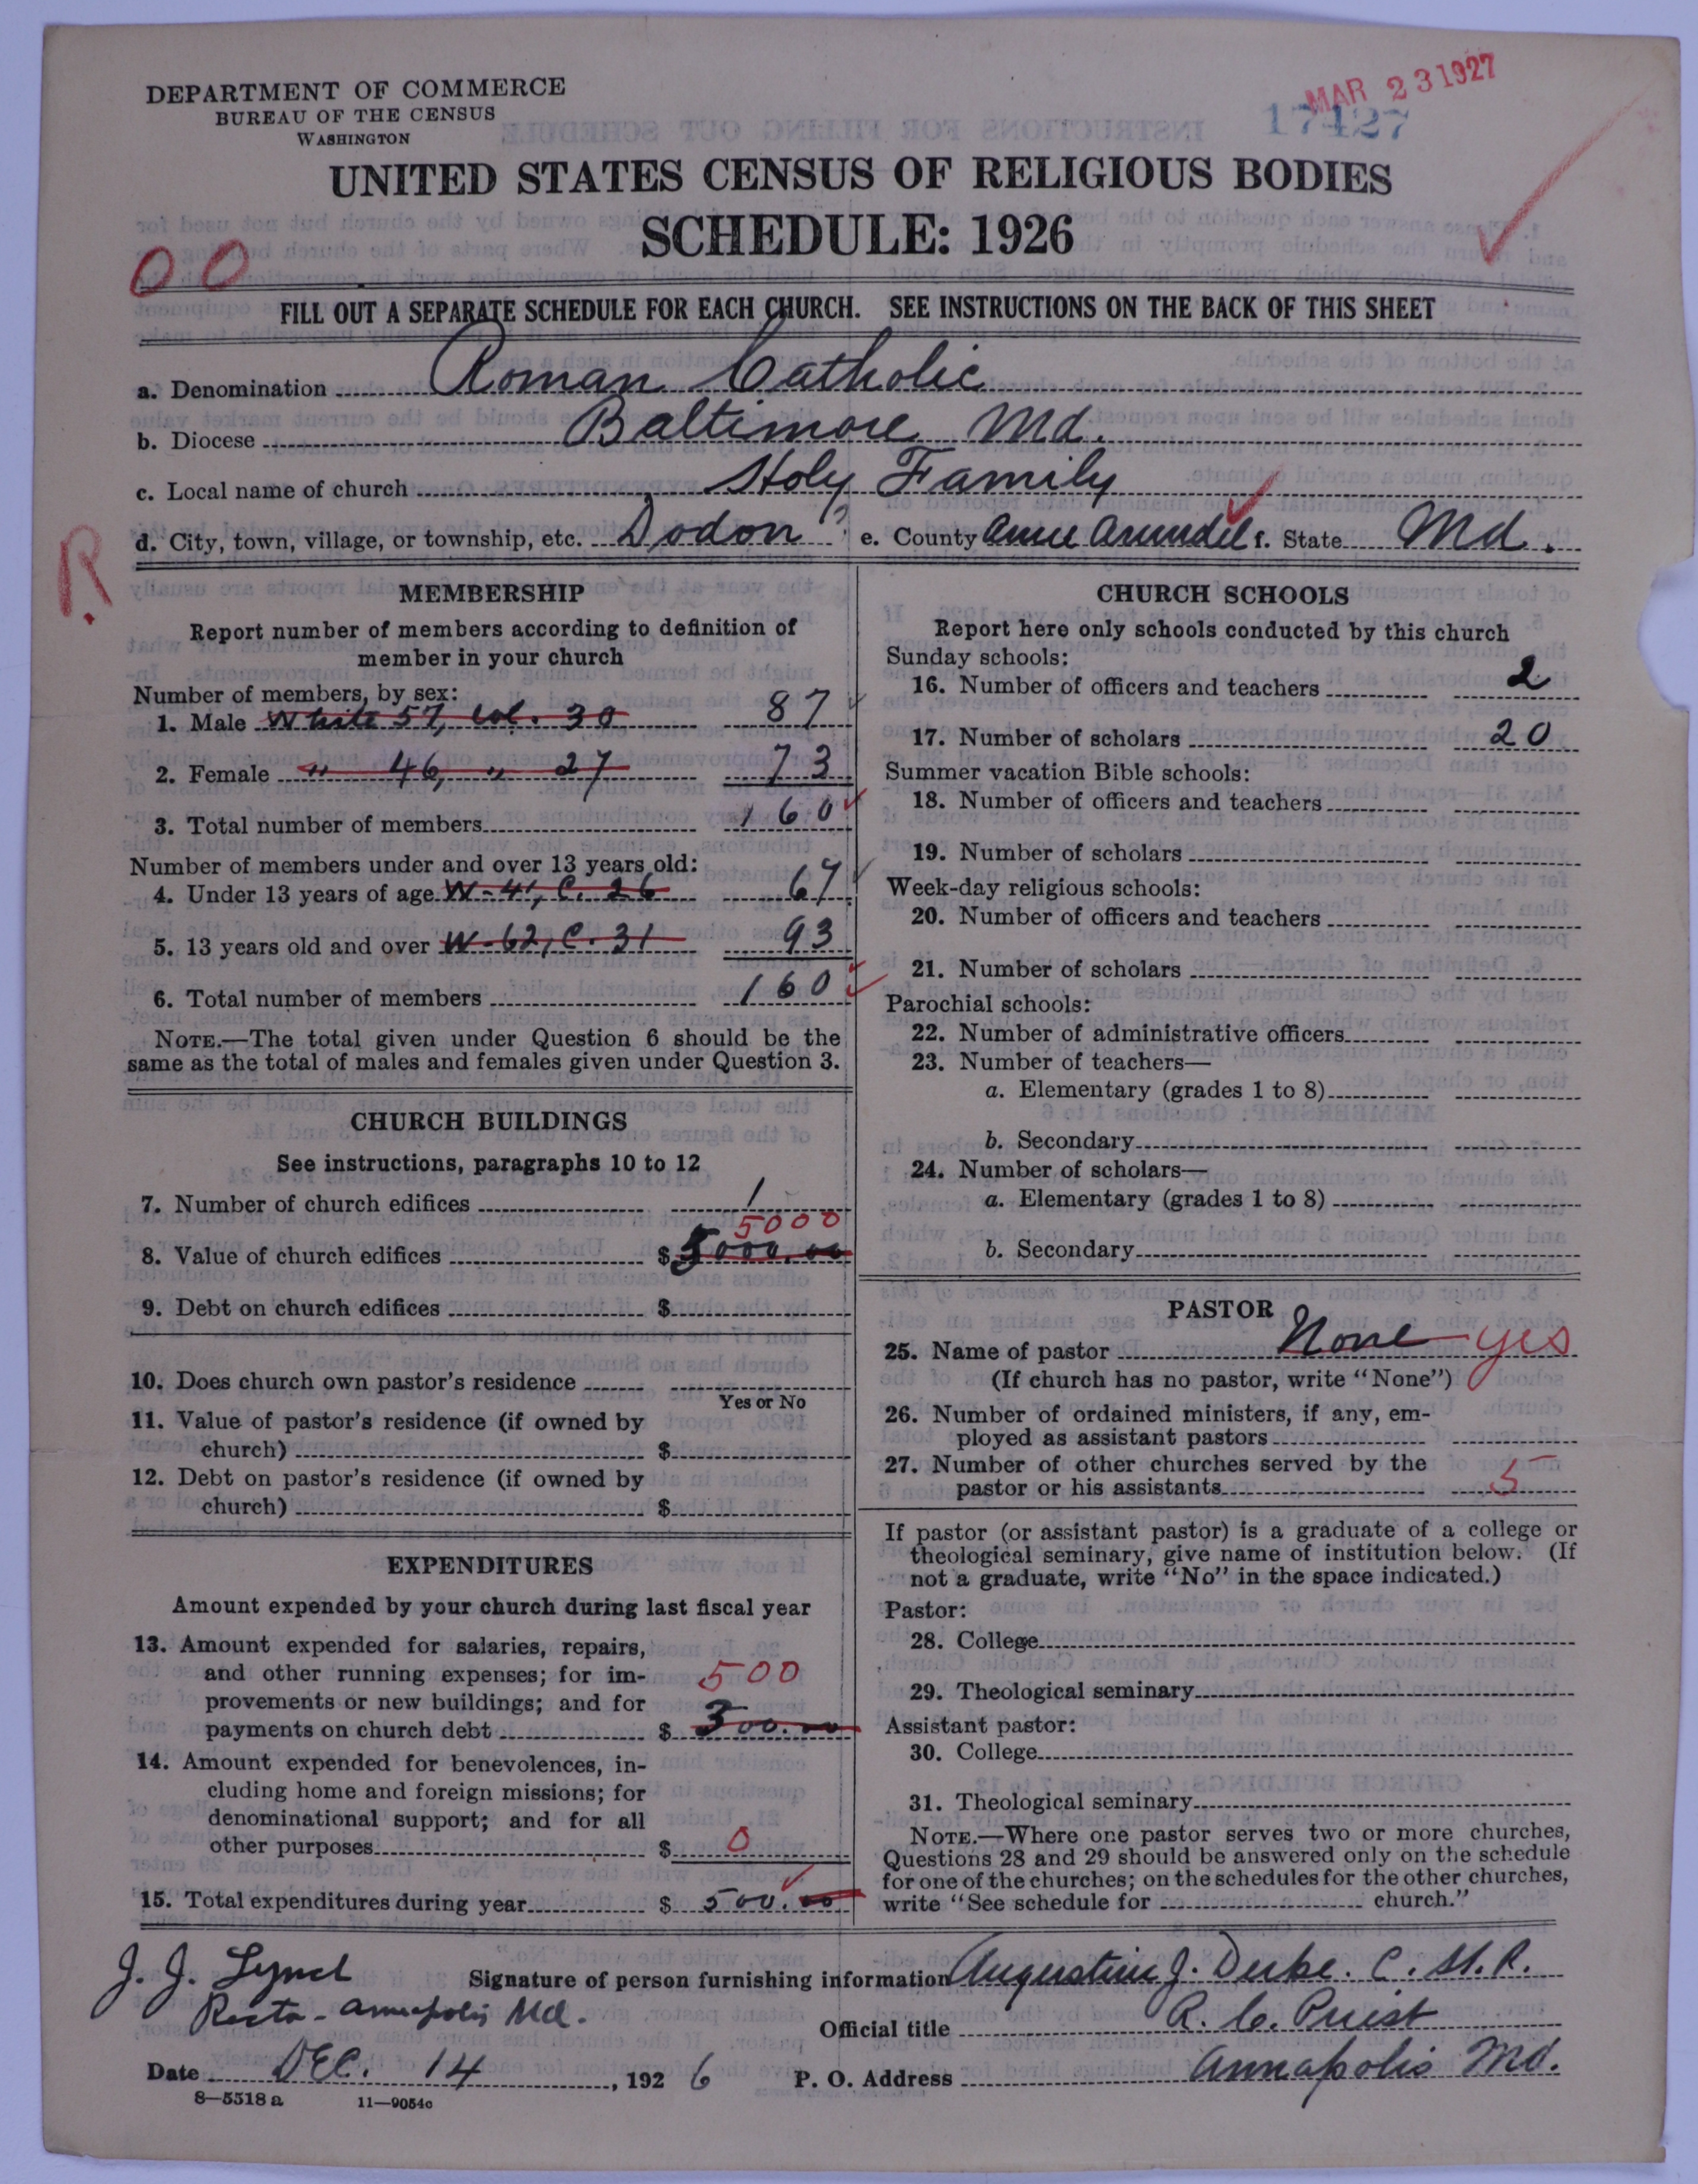 DEPARTMENT OF COMMERCE
BUREAU OF THE CENSUS
WASHINGTON
MAR 23 1927
17427
UNITED STATES CENSUS OF RELIGIOUS BODIES
SCHEDULE: 1926
00
FILL OUT A SEPARATE SCHEDULE FOR EACH CHURCH. SEE INSTRUCTIONS ON THE BACK OF THIS SHEET
a. Denomination Roman Catholic
b. Diocese Baltimore Md.
c. Local name of church Holy Family
d. City, town, village, or township, etc. Dodon e. County Anne Arundel f. State Md.
R.
MEMBERSHIP
Report number of members according to definition of
member in your church
Number of members, by sex:
1. Male White 57, Col. 30 87
2. Female " 46, " 27 73
3. Total number of members 160
Number of members under and over 13 years old:
4. Under 13 years of age W-41, C. 26 67
5. 13 years old and over W-62, C. 31 93
6. Total number of members 160
NOTE.—The total given under Question 6 should be the
same as the total of males and females given under Question 3.
CHURCH BUILDINGS
See instructions, paragraphs 10 to 12
7. Number of church edifices 1
5000
8. Value of church edifices $ 5000.00
9. Debt on church edifices $
10. Does church own pastor's residence
Yes or No
11. Value of pastor's residence (if owned by
church) $
12. Debt on pastor's residence (if owned by
church) $
EXPENDITURES
Amount expended by your church during last fiscal year
13. Amount expended for salaries, repairs,
and other running expenses; for im-
provements or new buildings; and for 500
payments on church debt $ 300.00
14. Amount expended for benevolences, in-
cluding home and foreign missions; for
denominational support; and for all
other purposes $ 0
15. Total expenditures during year $ 500.00
CHURCH SCHOOLS
Report here only schools conducted by this church
Sunday schools:
16. Number of officers and teachers 2
17. Number of scholars 20
Summer vacation Bible schools:
18. Number of officers and teachers
19. Number of scholars
Week-day religious schools:
20. Number of officers and teachers
21. Number of scholars
Parochial schools:
22. Number of administrative officers
23. Number of teachers—
a. Elementary (grades 1 to 8)
b. Secondary
24. Number of scholars—
a. Elementary (grades 1 to 8)
b. Secondary
PASTOR
25. Name of pastor None yes
(If church has no pastor, write "None")
26. Number of ordained ministers, if any, em-
ployed as assistant pastors
27. Number of other churches served by the
pastor or his assistants 5
If pastor (or assistant pastor) is a graduate of a college or
theological seminary, give name of institution below. (If
not a graduate, write "No" in the space indicated.)
Pastor:
28. College
29. Theological seminary
Assistant pastor:
30. College
31. Theological seminary
NOTE.—Where one pastor serves two or more churches,
Questions 28 and 29 should be answered only on the schedule
for one of the churches; on the schedules for the other churches,
write "See schedule for church."
J. J. Lynch
Rector - Annapolis Md.
Signature of person furnishing information Augustine J. Duke. C.SS.R.
Official title R. C. Priest
Date DEC. 14, 1926 P. O. Address Annapolis Md.
8—5518 a 11—9054c